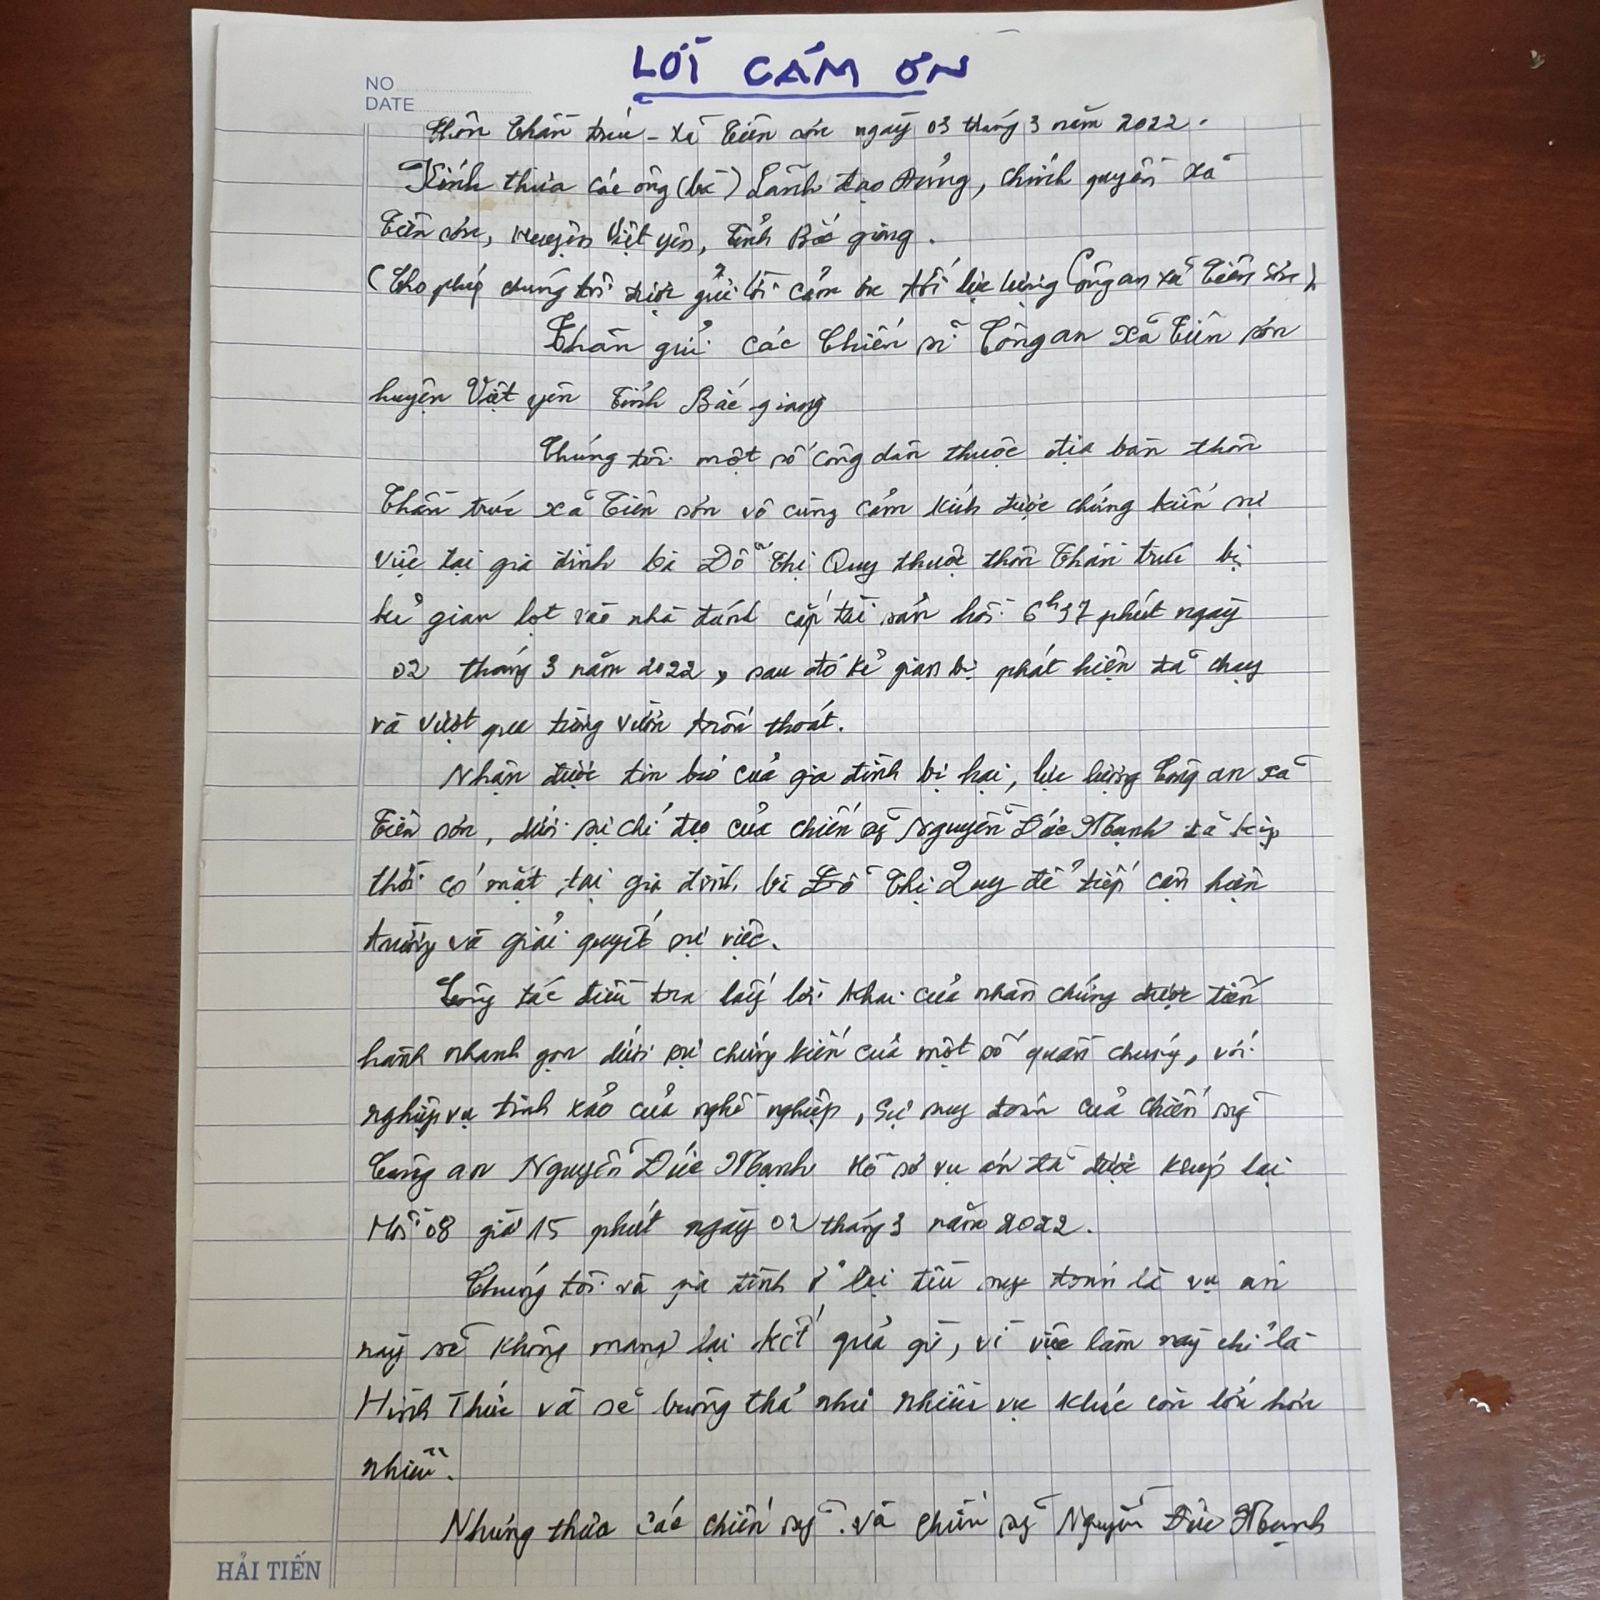 LỜI CẢM ƠN
NO
DATE
Thôn Thần trúc - xã Tiên sơn ngày 03 tháng 3 năm 2022.
Kính thưa các ông (bà) Lãnh đạo Đảng, chính quyền xã
Tiên sơn, Huyện Việt yên, Tỉnh Bắc giang.
(Cho phép chúng tôi được gửi lời cảm ơn tới lực lượng Công an xã Tiên sơn)
Thân gửi các Chiến sĩ Công an xã Tiên sơn
huyện Việt yên Tỉnh Bắc giang
Chúng tôi một số công dân thuộc địa bàn thôn
Thần trúc xã Tiên sơn vô cùng cảm kích được chứng kiến sự
việc tại gia đình bà Đỗ Thị Quy thuộc thôn Thần trúc bị
kẻ gian lọt vào nhà đánh cắp tài sản hồi 6h37 phút ngày
02 tháng 3 năm 2022, sau đó kẻ gian bị phát hiện đã chạy
và vượt qua tường vườn trốn thoát.
Nhận được tin báo của gia đình bị hại, lực lượng Công an xã
Tiên sơn, dưới sự chỉ đạo của chiến sỹ Nguyễn Đức Mạnh đã kịp
thời có mặt tại gia đình bà Đỗ Thị Quy để tiếp cận hiện
trường và giải quyết sự việc.
Công tác điều tra lấy lời khai của nhân chứng được tiến
hành nhanh gọn dưới sự chứng kiến của một số quần chúng, với
nghiệp vụ tinh xảo của nghề nghiệp, sự suy đoán của chiến sỹ
Công an Nguyễn Đức Mạnh Hồ sơ vụ án đã được khép lại
Hồi 08 giờ 15 phút ngày 02 tháng 3 năm 2022.
Chúng tôi và gia đình ở lại đều suy đoán là vụ án
này sẽ không mang lại kết quả gì, vì việc làm này chỉ là
Hình Thức và sẽ buông thả như nhiều vụ khác còn lớn hơn
nhiều.
Nhưng thưa các chiến sỹ và chiến sỹ Nguyễn Đức Mạnh
HẢI TIẾN